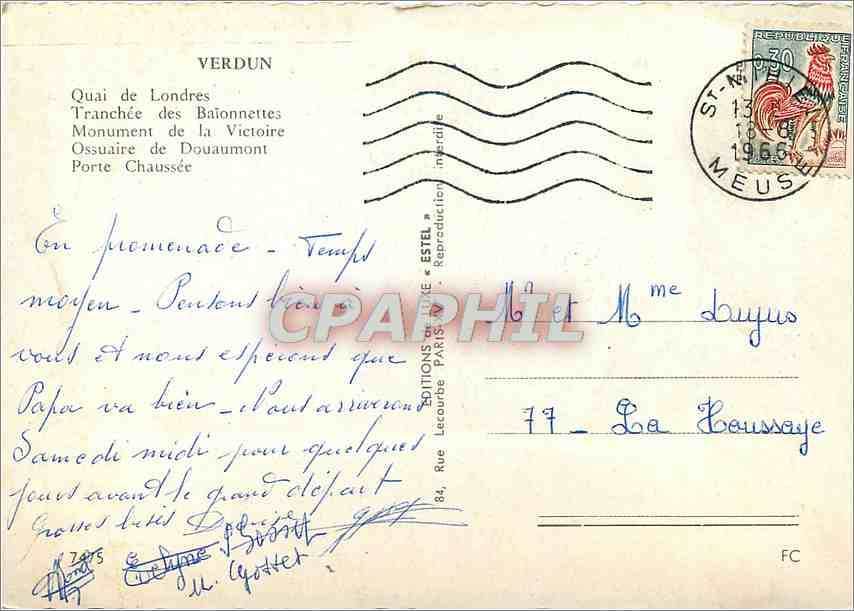 VERDUN
Quai de Londres
Tranchée des Baïonnettes
Monument de la Victoire
Ossuaire de Douaumont
Porte Chaussée
En promenade - Temps
moyen - Pensons bien à
vous et nous espérons que
Papa va bien - Nous arriverons
Samedi midi pour quelques
jours avant le grand départ
Grosses bises
7475
EDITIONS de LUXE « ESTEL »
84, Rue Lecourbe PARIS-XV - Reproduction interdite
CPAPHIL
REPUBLIQUE FRANÇAISE
0,30
ST-MIHIEL
13 H
18-8
1966
MEUSE
Mr et Mme
77 - La Houssaye
FC